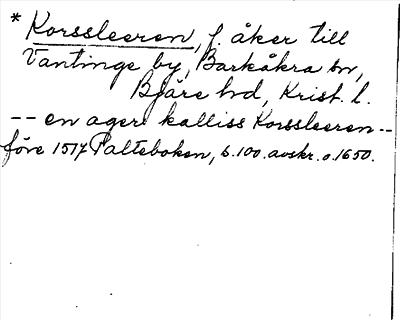 * Korssleeren, f. åker till
Vantinge by, Barkåkra sn,
Bjäre hd, Krist. l.
-- en ager kalliss Korssleeren --
före 1517 Palteboken, s. 100. avskr. o. 1650.